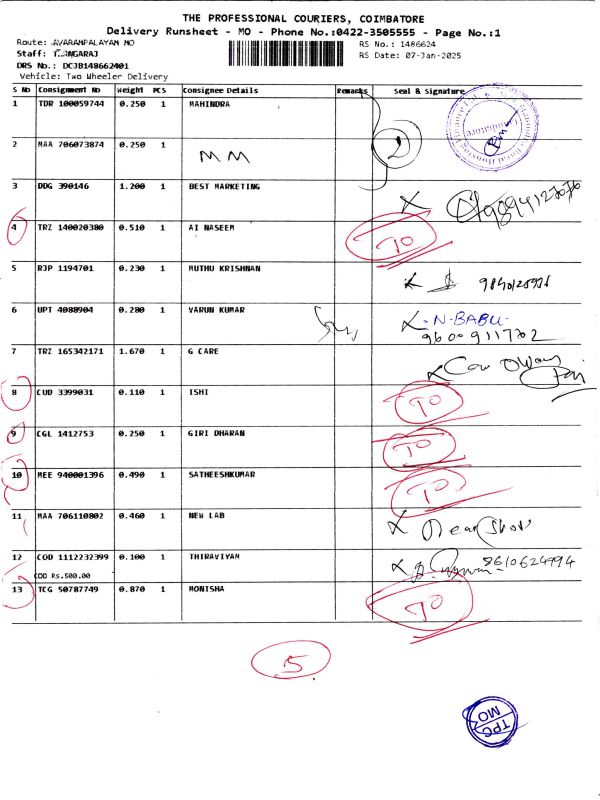 THE PROFESSIONAL COURIERS, COIMBATORE
Delivery Runsheet - MO - Phone No.:0422-3505555 - Page No.:1
Route: AVARAMPALAYAM MO
RS No.: 1486624
Staff: THANGARAJ
RS Date: 07-Jan-2025
DRS No.: DCJB148662401
Vehicle: Two Wheeler Delivery
S No Consignment No Weight PCS Consignee Details Remarks Seal & Signature
1 TDR 100059744 0.250 1 MAHINDRA
2 MAA 706073874 0.250 1 MM 2
3 DDG 390146 1.200 1 BEST MARKETING
4 TRZ 140020380 0.510 1 AI NASEEM TO
5 RJP 1194701 0.230 1 MUTHU KRISHNAN
6 UPT 4088904 0.280 1 VARUN KUMAR N-BABU
9600911702
7 TRZ 165342171 1.670 1 G CARE
8 CUD 3399031 0.110 1 ISHI TO
9 CGL 1412753 0.250 1 GIRI DHARAN TO
10 MEE 940001396 0.490 1 SATHEESHKUMAR TO
11 MAA 706110802 0.460 1 NEW LAB
12 COD 1112232399 0.100 1 THIRAVIYAM 8610624994
COD Rs.500.00
13 TCG 50787749 0.870 1 MONISHA TO
5
TPC
MO